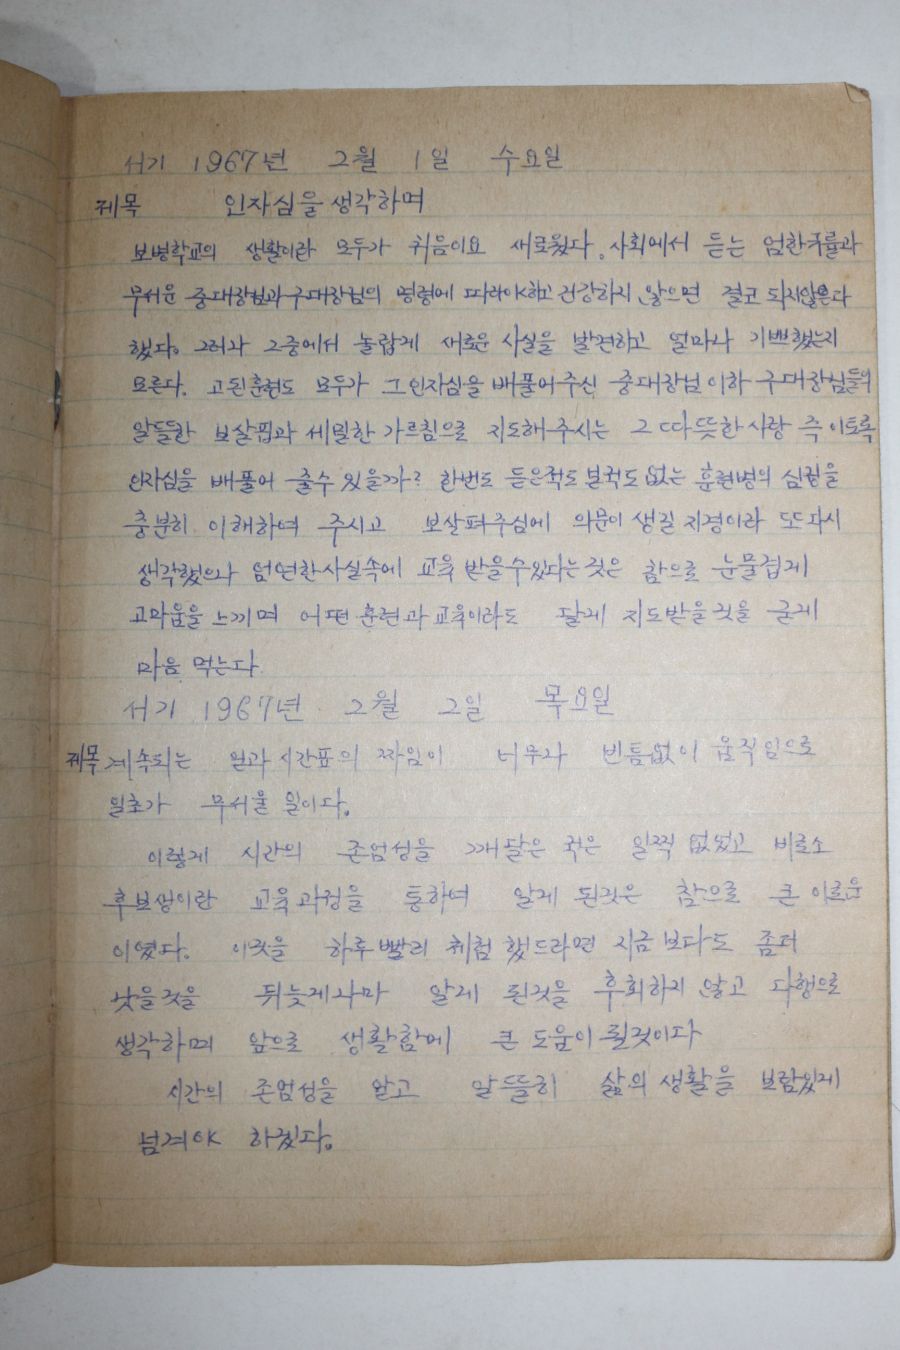 서기 1967년 2월 1일 수요일
제목 인자심을 생각하며
보병학교의 생활이란 모두가 처음이요 새로웠다. 사회에서 듣는 엄한규률과
무서운 중대장님과 구대장님의 명령에 따라야하고 건강하지 않으면 결코 되지않은다
했다. 그러나 그중에서 놀랍게 새로운 사실을 발견하고 얼마나 기뻐했는지
모른다. 고된훈련도 모두가 그인자심을 배풀어주신 중대장님이하 구대장님들의
알뜰한 보살핍과 세밀한 가르침으로 지도해주시는 그 따뜻한 사랑 즉 이토록
인자심을 배풀어 줄수 있을까? 한번도 듣은적도 본적도 없는 훈련병의 심정을
충분히 이해하여 주시고 보살펴주심에 의문이 생길 지경이라 또다시
생각했으나 엄연한사실속에 교육 받을수있다는것은 참으로 눈물겹게
고마움을 느끼며 어떤 훈련과 교육이라도 달게 지도받을것을 굳게
마음 먹는다.
서기 1967년 2월 2일 목요일
제목 계속되는 일과 시간표의 짜임이 너무나 빈틈없이 움직임으로
일초가 무서울 일이다.
이렇게 시간의 존엄성을 깨달은 적은 일찍 없었고 비로소
후보생이란 교육과정을 통하여 알게 된것은 참으로 큰 이로운
이였다. 이것을 하루빨리 체험했드라면 지금보다도 좀더
낫을것을 뒤늦게나마 알게 된것을 후회하지 않고 다행으로
생각하며 앞으로 생활함에 큰 도움이 될것이다
시간의 존엄성을 알고 알뜰히 삶의 생활을 보람있게
넘겨야 하겠다.